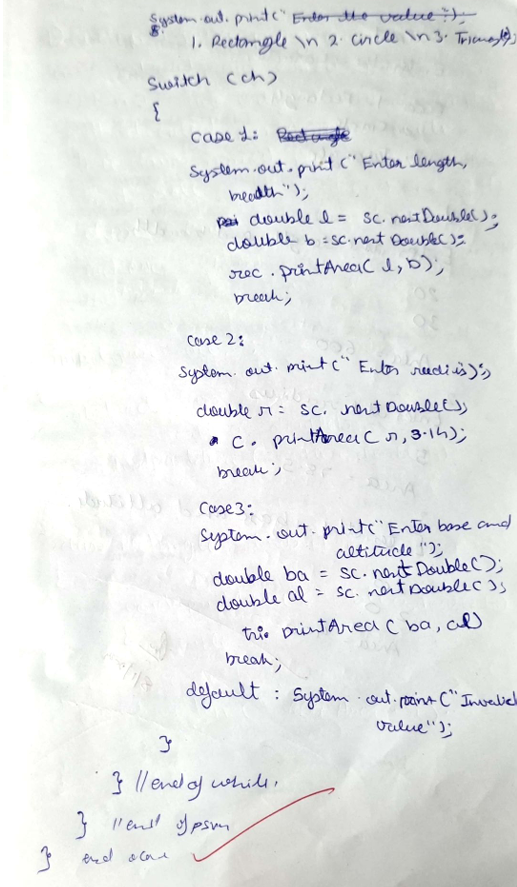 System.out.print("Enter the value:");
1. Rectangle \n 2. circle \n 3. Triangle);
Switch (ch)
{
case 1: Rectangle
System.out.print ("Enter length,
breadth");
double l = sc.nextDouble();
double b = sc.next Double();
rec . printArea( l, b);
break;
case 2:
System. out. print (" Enter radius);
double r = sc. nextDouble();
C. printArea( r, 3.14);
break;
Case3:
System. out. print("Enter base and
altitude ");
double ba = sc. nextDouble();
double al = sc. nextDouble();
tri. printArea ( ba, al)
break;
default : System .out.print ("Invalid
value");
}
} //end of while.
} //end of psvm
} end